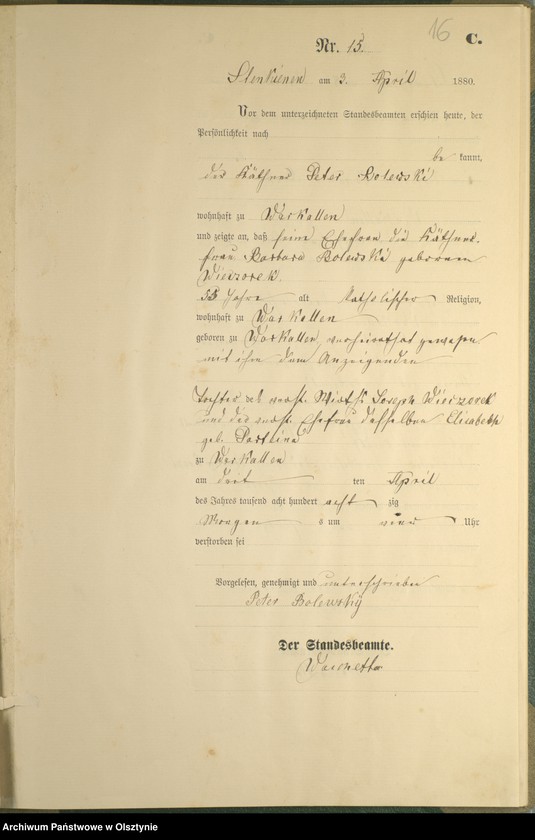 16 C.
Nr. 15.
Stenkienen am 3. April 1880.
Vor dem unterzeichneten Standesbeamten erschien heute, der
Persönlichkeit nach
be kannt,
der Käthner Peter Bolewski
wohnhaft zu Warkallen
und zeigte an, daß seine Ehefrau die Käthner-
frau Barbara Bolewski geborenen
Wieczorek
Jahre alt Katholischer Religion,
wohnhaft zu Warkallen
geboren zu Warkallen, verheirathet gewesen
mit ihm dem Anzeigenden
Tochter des verst. Wirths Joseph Wieczorek
und der verst. Ehefrau desselben Elisabeth
geb.
zu Warkallen
am drit ten April
des Jahres tausend acht hundert acht zig
Morgen s um vier Uhr
verstorben sei
Vorgelesen, genehmigt und unterschrieben
Peter Bolewsky
Der Standesbeamte.
Archiwum Państwowe w Olsztynie